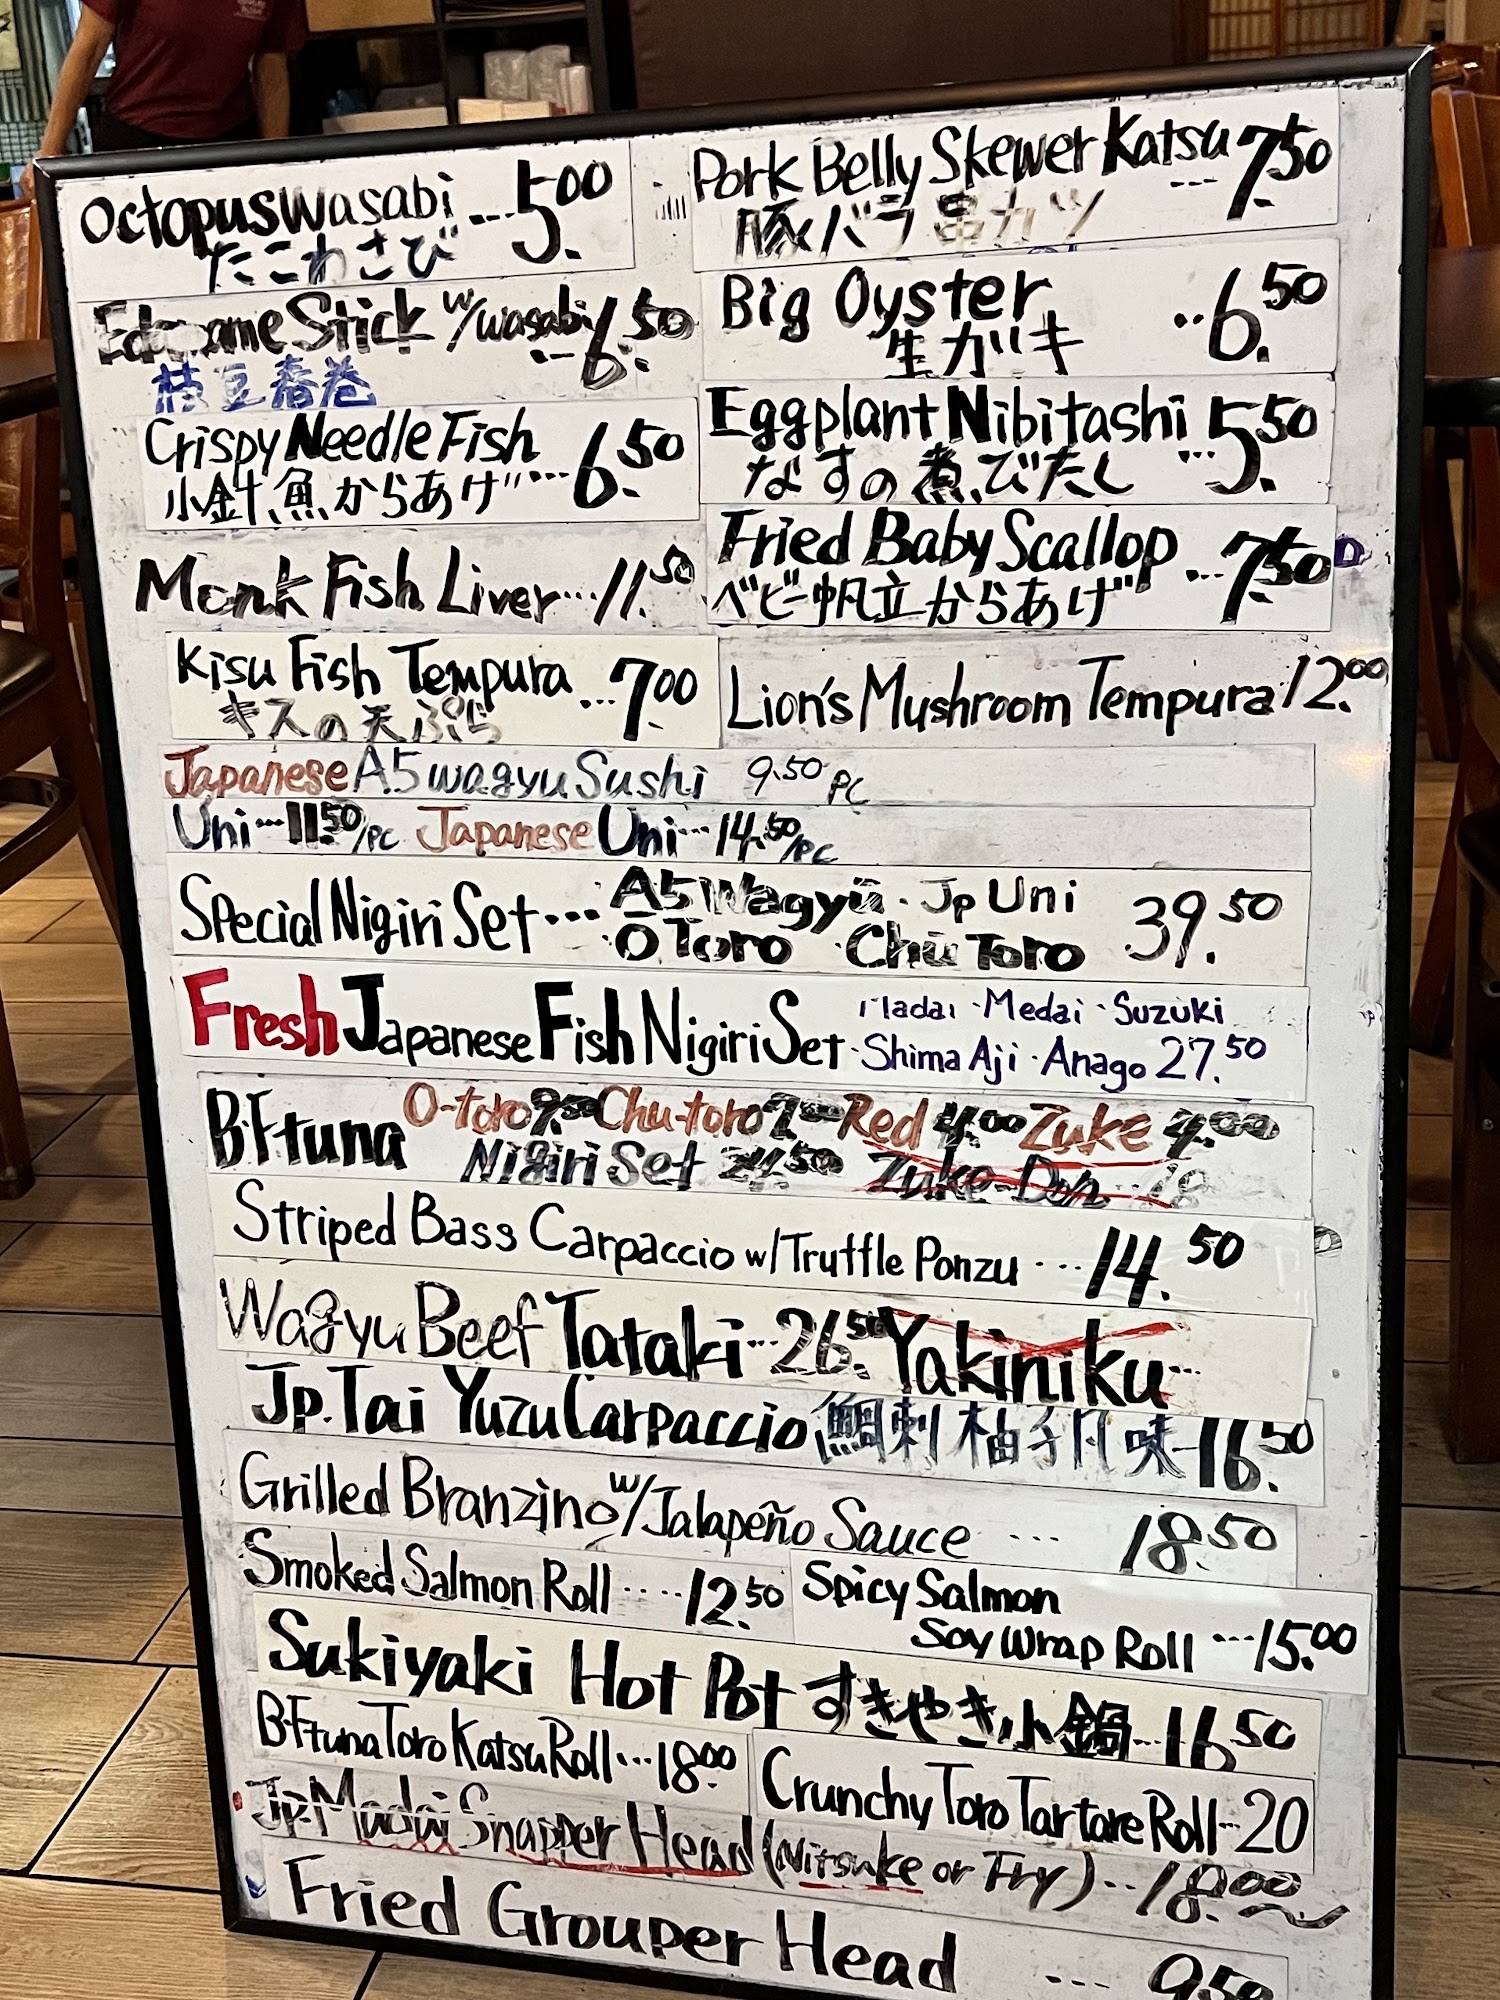 Octopus Wasabi ... 5.00
たこわさび
Pork Belly Skewer Katsu ... 7.50
豚バラ串カツ
Edamame Stick w/wasabi ... 6.50
枝豆春巻
Big Oyster ... 6.50
生ガキ
Crispy Needle Fish ... 6.50
小針魚からあげ
Eggplant Nibitashi ... 5.50
なすの煮びたし
Monk Fish Liver ... 11.50
Fried Baby Scallop ... 7.50
ベビー帆立からあげ
Kisu Fish Tempura ... 7.00
キスの天ぷら
Lion's Mushroom Tempura 12.00
Japanese A5 wagyu Sushi 9.50 PC
Uni ... 11.50/PC Japanese Uni ... 14.50/PC
Special Nigiri Set ... A5 Wagyu · Jp Uni
O Toro · Chu Toro 39.50
Fresh Japanese Fish Nigiri Set · Madai · Medai · Suzuki
Shima Aji · Anago 27.50
B·F tuna O-toro Chu-toro Red 4.00 Zuke 4.00
Nigiri Set 24.50 Zuke-Don ... 18
Striped Bass Carpaccio w/Truffle Ponzu ... 14.50
Wagyu Beef Tataki ... 26.50 Yakiniku ...
Jp. Tai Yuzu Carpaccio 鯛刺柚子風味 16.50
Grilled Branzino w/Jalapeño Sauce ... 18.50
Smoked Salmon Roll .... 12.50
Spicy Salmon
Soy Wrap Roll ... 15.00
Sukiyaki Hot Pot すきやき小鍋 ... 16.50
B·F tuna Toro Katsu Roll ... 18.00
Crunchy Toro Tartare Roll ... 20
Jp. Madai Snapper Head (Nitsuke or Fry) .. 18.00~
Fried Grouper Head ... 9.50